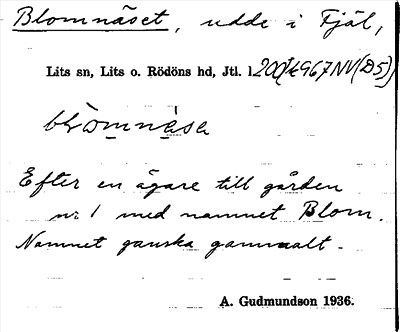 Blomnäset, udde i Fjäl,
Lits sn, Lits o. Rödöns hd, Jtl. l.
Efter en ägare till gården
nr 1 med namnet Blom.
Namnet ganska gammalt.
A. Gudmundson 1936.